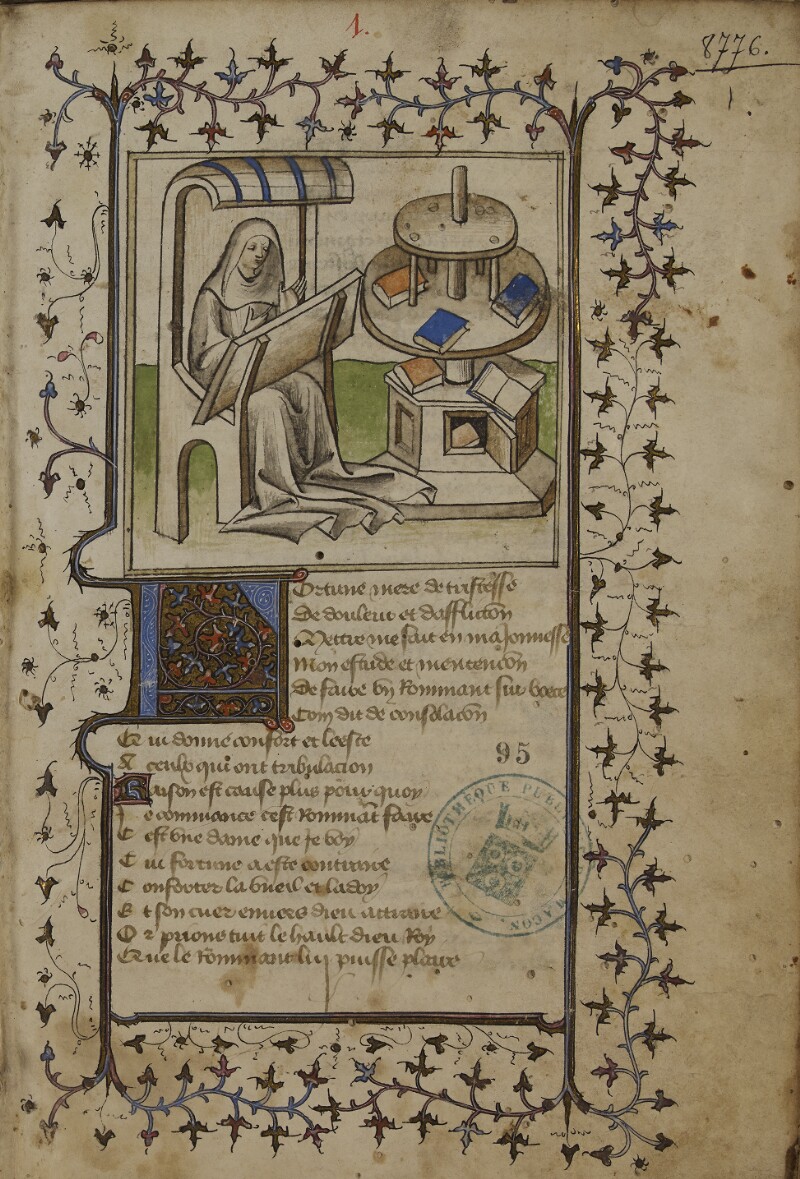 1.
8776.
Fortune mere de tristesse
De douleur et dafflictōn
Mettre me fait en ma jonnesse
Mon estude et mentencōn
De faire vn Rommant sur boece
Com dit de consolacōn
Qui donne confort et leesce
A ceulx qui ont tribulacion
Raison est cause plus pour quoy
Je commance cest Rommāt faire
Cest vne dame que je voy
Cui fortune a este contraire
Conforter la vueil et la doy
Et son cuer enuers dieu attraire
Or prions tuit le hault dieu Roy
Que le Rommant lui puisse plaire
95
BIBLIOTHÈQUE PUBL
MACON